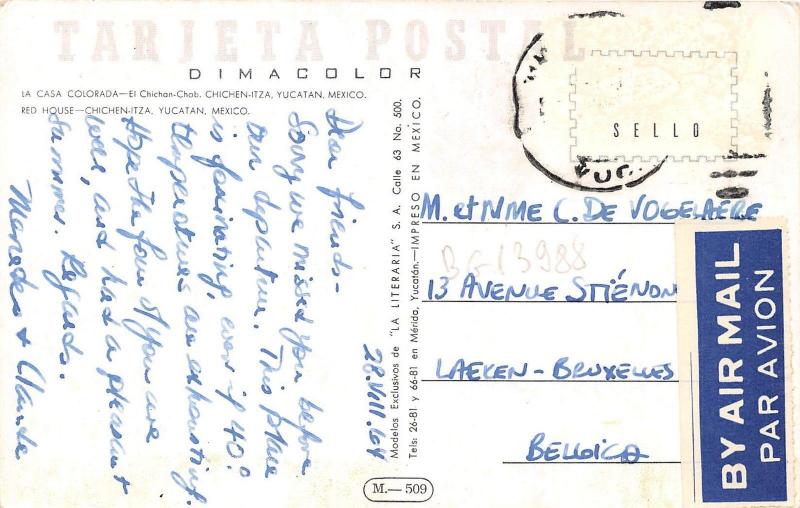 TARJETA POSTAL
DIMACOLOR
LA CASA COLORADA—El Chichan-Chob. CHICHEN-ITZA, YUCATAN, MEXICO.
RED HOUSE—CHICHEN-ITZA, YUCATAN, MEXICO.
28.VIII.64
Dear friends-
Sorry we missed you before
our departure. This place
is fascinating, even if 40°
temperatures are exhausting.
Hope the four of you are
well, and had a pleasant
summer. Regards.
& Claude
Modelos Exclusivos de "LA LITERARIA" S. A. Calle 63 No. 500.
Tels: 26-81 y 66-81 en Mérida, Yucatán.—IMPRESO EN MEXICO.
M.—509
SELLO
YUC.
M. et MME C. DE VOGELAERE
BG13988
13 AVENUE STIÉNON
LAEKEN-BRUXELLES
BELGICA
BY AIR MAIL
PAR AVION